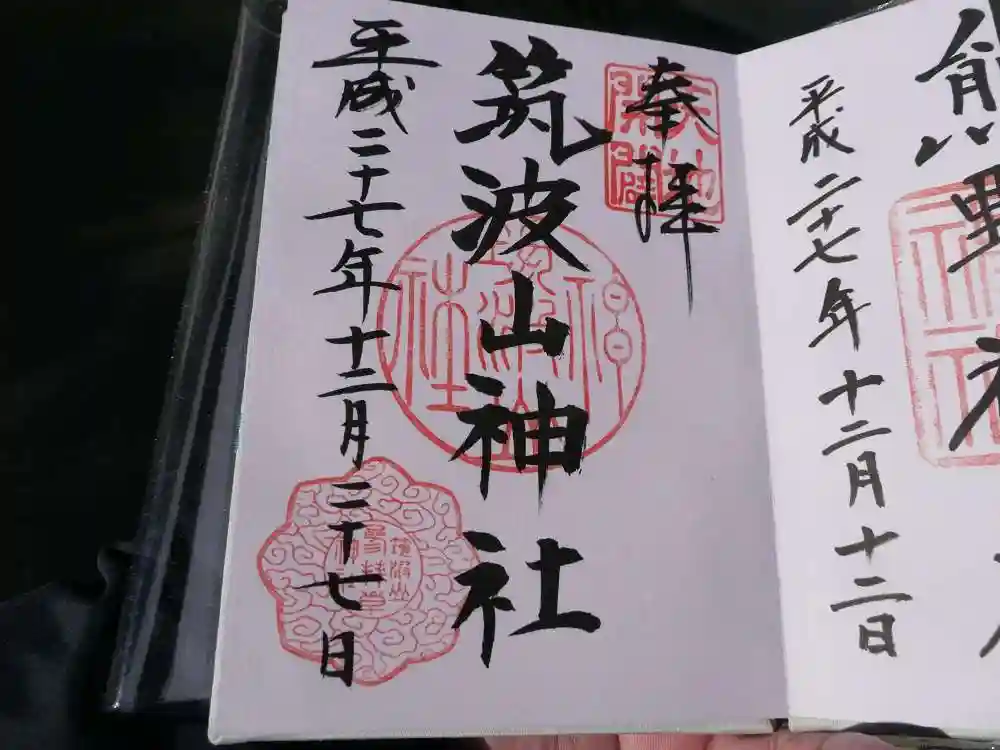 熊野
平成二十七年十二月十二日
奉拝
天地
開闢
筑波山神社
平成二十七年十二月二十七日